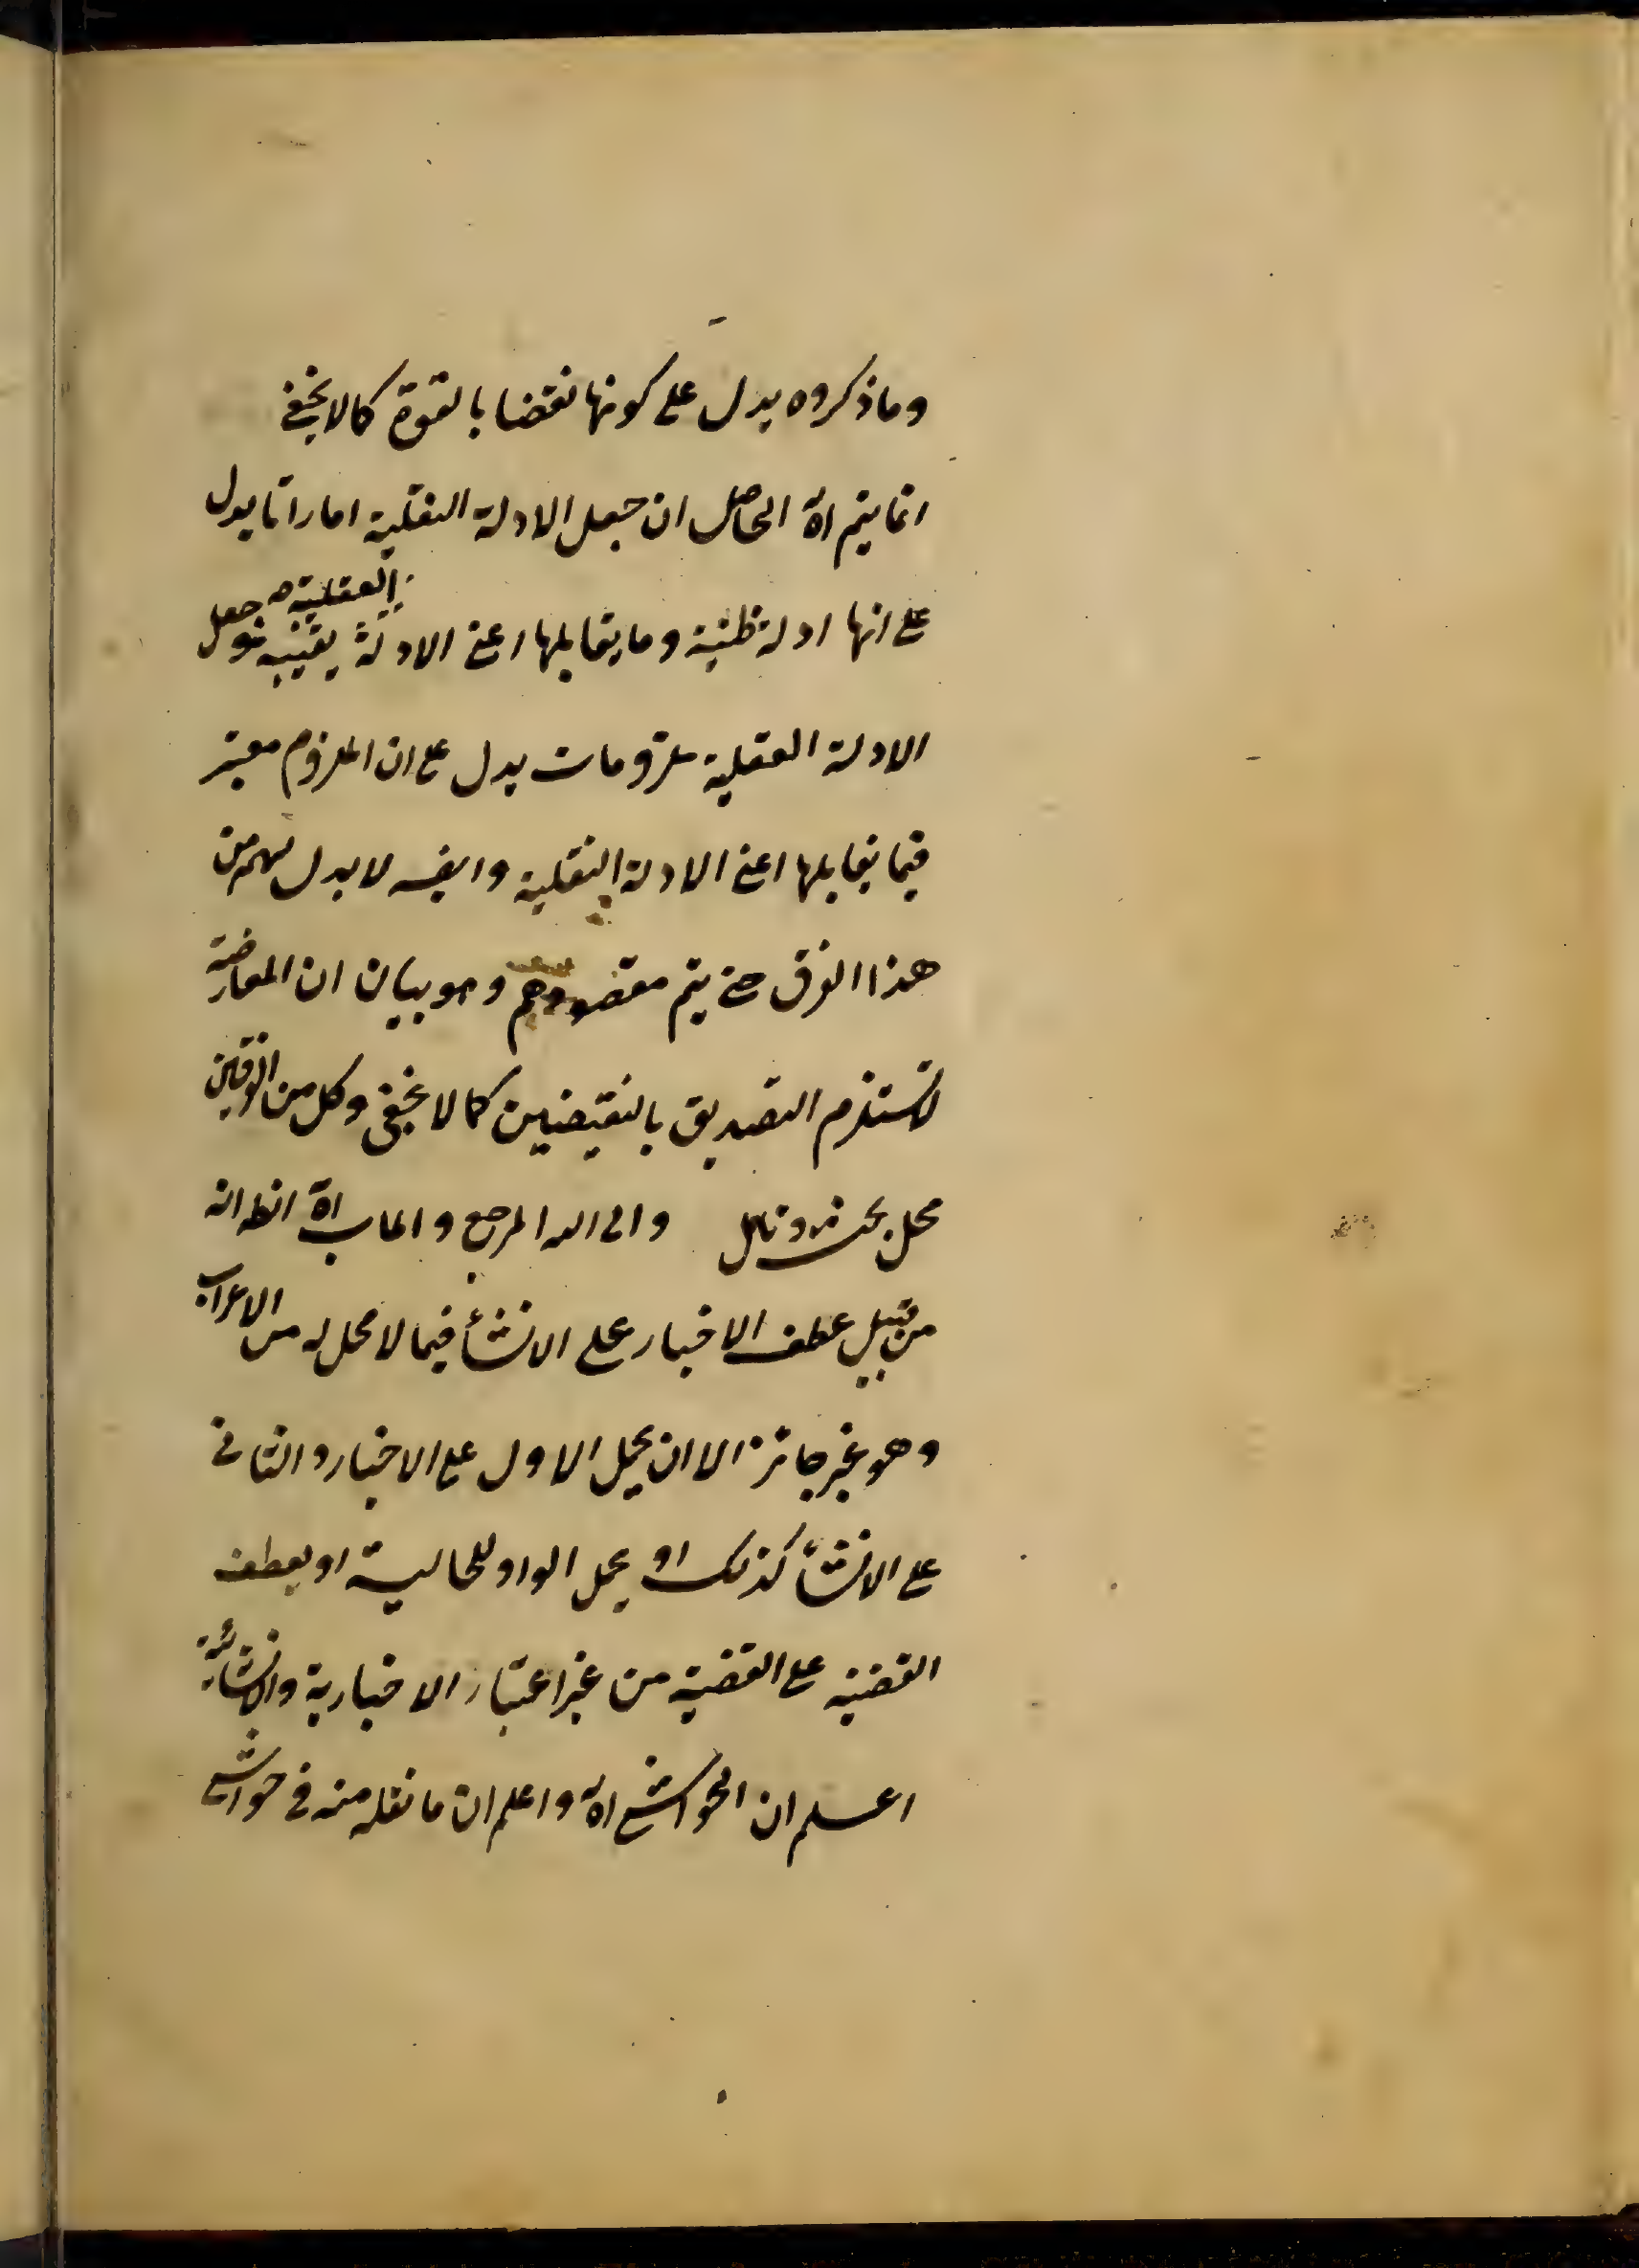 وما ذكروه يدل على كونها نقضا بالقوة كما لا يخفى
انما يتم اه الحاصل ان جعل الادلة النقلية امارا تا يدل
على انها ادلة ظنية وما يقابلها اعنى الادلة العقلية يقينية جعل
الادلة العقلية ملزومات يدل على ان الملزوم معتبر
فيما يقابلها اعنى الادلة النقلية وايضا لا بد لهم من
هذا الفرق حتى يتم مقصودهم وهو بيان ان المعارضة
لا تستلزم التصديق بالنقيضين كما لا يخفى وكل من الفرقين
محل بحث وتأمل والى الله المرجع والمآب اه الظ انه
من قبيل عطف الاخبار على الانشأ فيما لا محل له من الاعراب
وهو غير جائز الا ان يحمل الاول على الاخبار والثانى
على الانشأ كذلك او يحمل الواو للحالية او يعطف
القضية على القضية من غير اعتبار الاخبارية والانشائية
اعلم ان الحواشى اه واعلم ان ما نقله منه فى حواشى